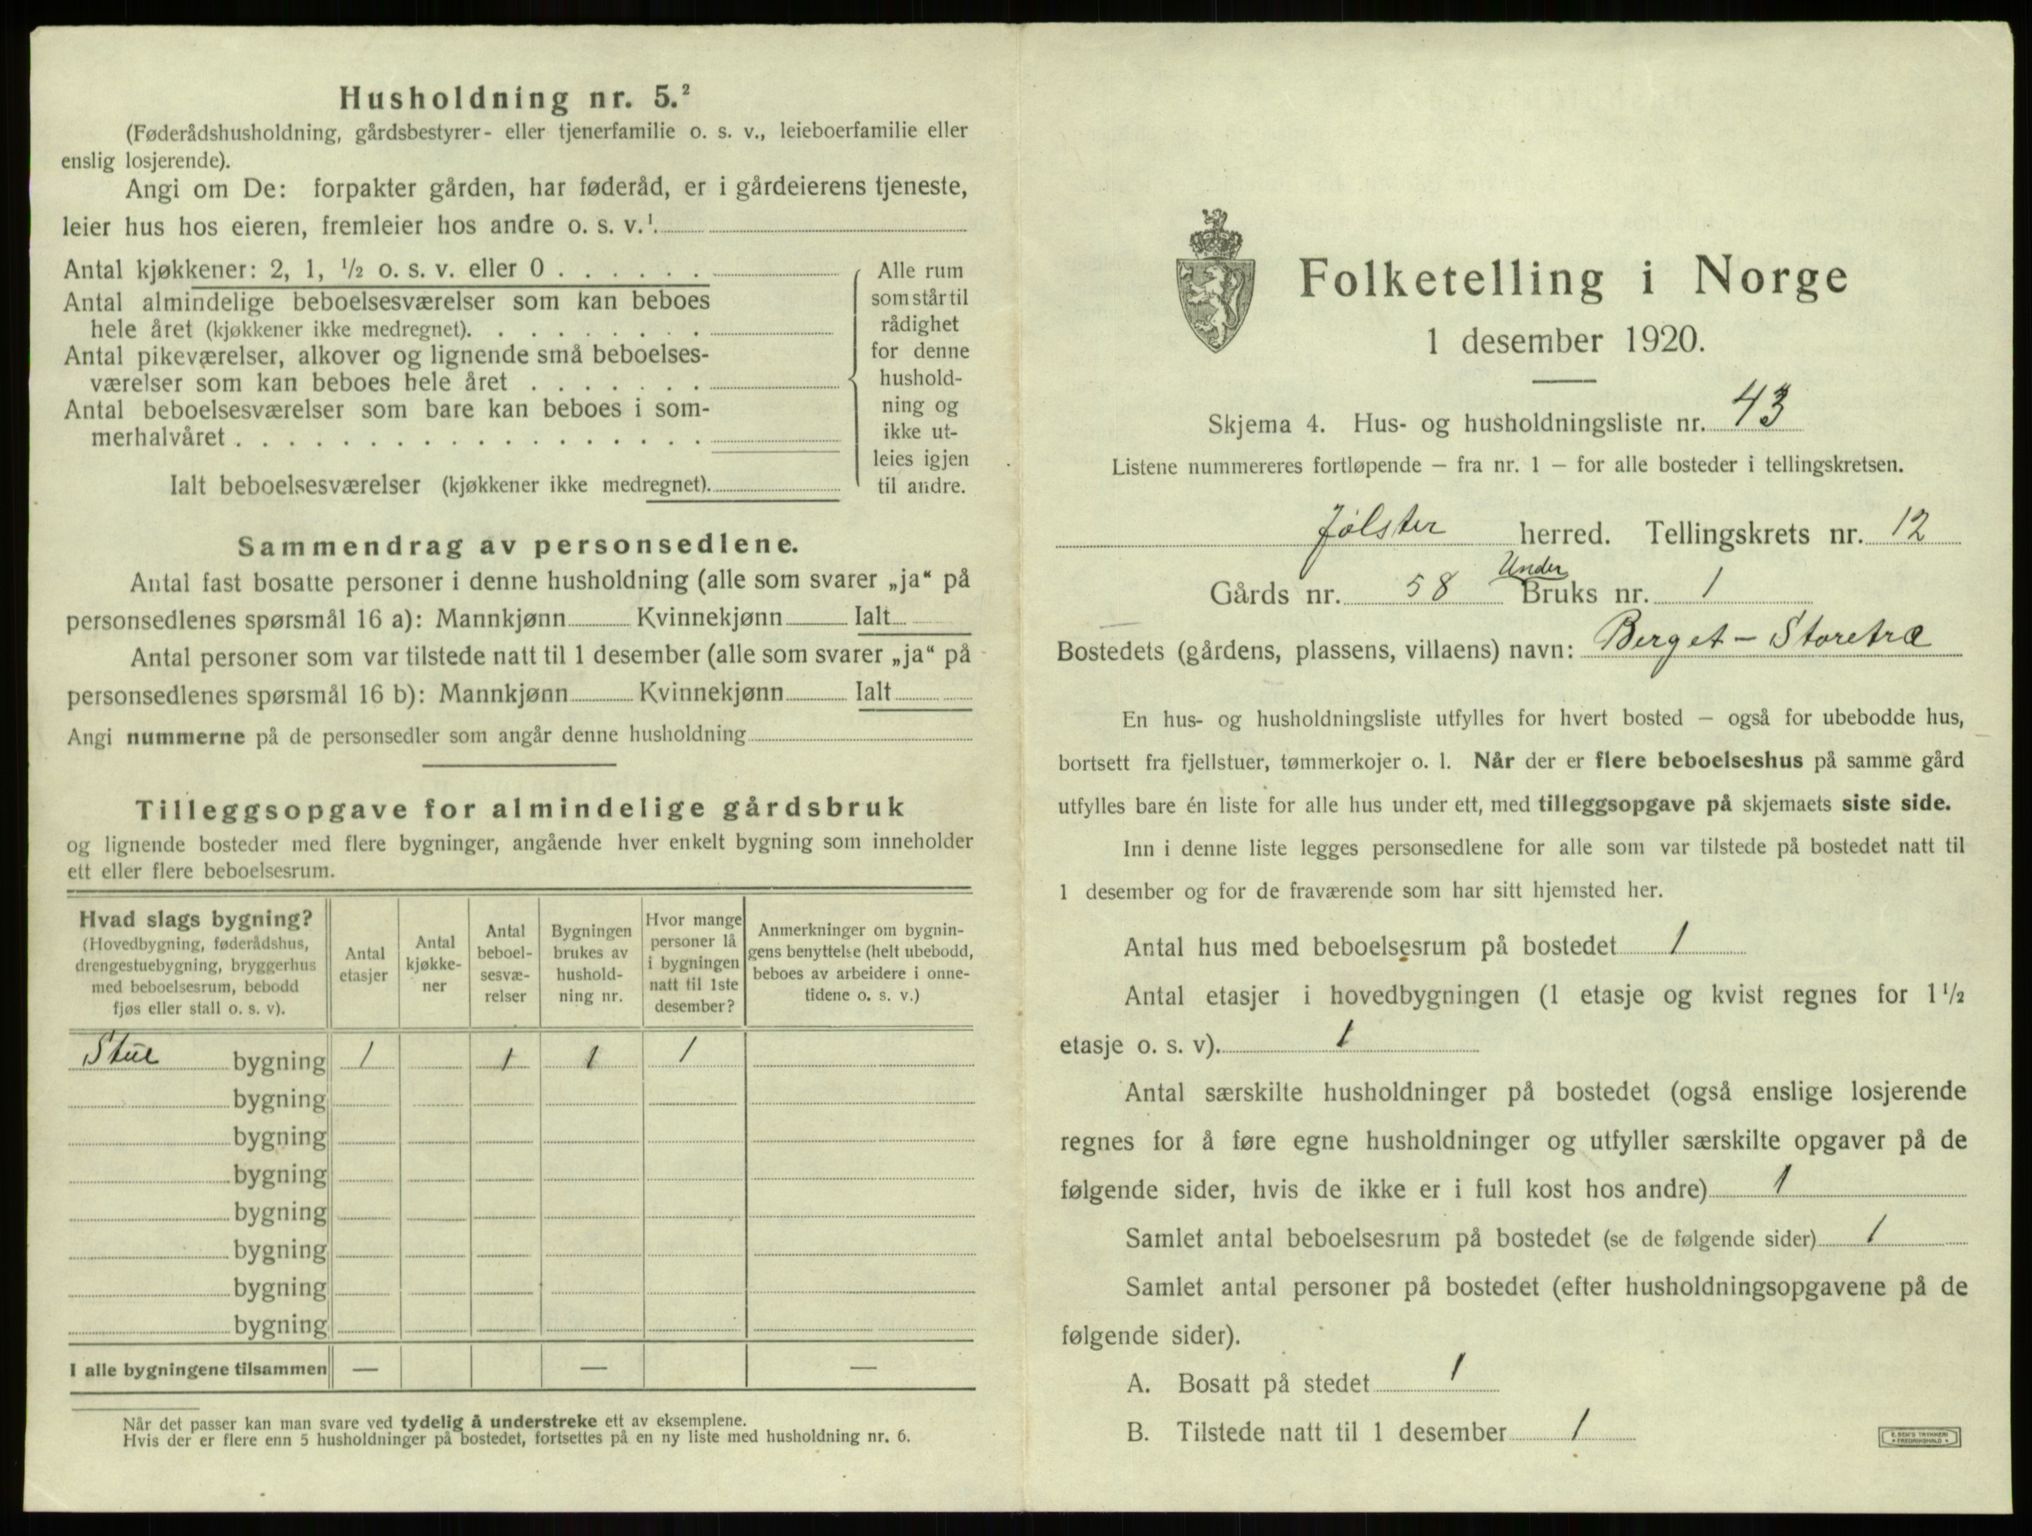 Husholdning nr. 5.²
(Føderådshusholdning, gårdsbestyrer- eller tjenerfamilie o. s. v., leieboerfamilie eller
enslig losjerende).
Angi om De: forpakter gården, har føderåd, er i gårdeierens tjeneste,
leier hus hos eieren, fremleier hos andre o. s. v.¹
Antal kjøkkener: 2, 1, ½ o. s. v. eller 0 . . . . . .
Antal almindelige beboelsesværelser som kan beboes
hele året (kjøkkener ikke medregnet). . . . . . . . .
Antal pikeværelser, alkover og lignende små beboelses-
værelser som kan beboes hele året . . . . . . .
Antal beboelsesværelser som bare kan beboes i som-
merhalvåret . . . . . . . . . . . . . . . . . .
Ialt beboelsesværelser (kjøkkener ikke medregnet).
Alle rum
som står til
rådighet
for denne
hushold-
ning og
ikke ut-
leies igjen
til andre.
Sammendrag av personsedlene.
Antal fast bosatte personer i denne husholdning (alle som svarer „ja“ på
personsedlenes spørsmål 16 a): Mannkjønn Kvinnekjønn Ialt
Antal personer som var tilstede natt til 1 desember (alle som svarer „ja“ på
personsedlenes spørsmål 16 b): Mannkjønn Kvinnekjønn Ialt
Angi nummerne på de personsedler som angår denne husholdning
Tilleggsopgave for almindelige gårdsbruk
og lignende bosteder med flere bygninger, angående hver enkelt bygning som inneholder
ett eller flere beboelsesrum.
Hvad slags bygning?
(Hovedbygning, føderådshus,
drengestuebygning, bryggerhus
med beboelsesrum, bebodd
fjøs eller stall o. s. v).
Antal
etasjer
Antal
kjøkke-
ner
Antal
beboel-
sesvæ-
relser
Bygningen
brukes av
hushold-
ning nr.
Hvor mange
personer lå
i bygningen
natt til 1ste
desember?
Anmerkninger om bygnin-
gens benyttelse (helt ubebodd,
beboes av arbeidere i onne-
tidene o. s. v.)
Stue bygning 1 1 1 1
bygning
bygning
bygning
bygning
bygning
bygning
bygning
I alle bygningene tilsammen — — —
Når det passer kan man svare ved tydelig å understreke ett av eksemplene.
Hvis der er flere enn 5 husholdninger på bostedet, fortsettes på en ny liste med husholdning nr. 6.
Folketelling i Norge
1 desember 1920.
Skjema 4. Hus- og husholdningsliste nr. 43
Listene nummereres fortløpende – fra nr. 1 – for alle bosteder i tellingskretsen.
Jølster herred. Tellingskrets nr. 12
Under
Gårds nr. 58 Bruks nr. 1
Bostedets (gårdens, plassens, villaens) navn: Berget – Storetræ
En hus- og husholdningsliste utfylles for hvert bosted – også for ubebodde hus,
bortsett fra fjellstuer, tømmerkojer o. l. Når der er flere beboelseshus på samme gård
utfylles bare én liste for alle hus under ett, med tilleggsopgave på skjemaets siste side.
Inn i denne liste legges personsedlene for alle som var tilstede på bostedet natt til
1 desember og for de fraværende som har sitt hjemsted her.
Antal hus med beboelsesrum på bostedet 1
Antal etasjer i hovedbygningen (1 etasje og kvist regnes for 1½
etasje o. s. v). 1
Antal særskilte husholdninger på bostedet (også enslige losjerende
regnes for å føre egne husholdninger og utfyller særskilte opgaver på de
følgende sider, hvis de ikke er i full kost hos andre) 1
Samlet antal beboelsesrum på bostedet (se de følgende sider) 1
Samlet antal personer på bostedet (efter husholdningsopgavene på de
følgende sider).
A. Bosatt på stedet 1
B. Tilstede natt til 1 desember 1
E. SEM'S TRYKKERI
FREDRIKSHALD